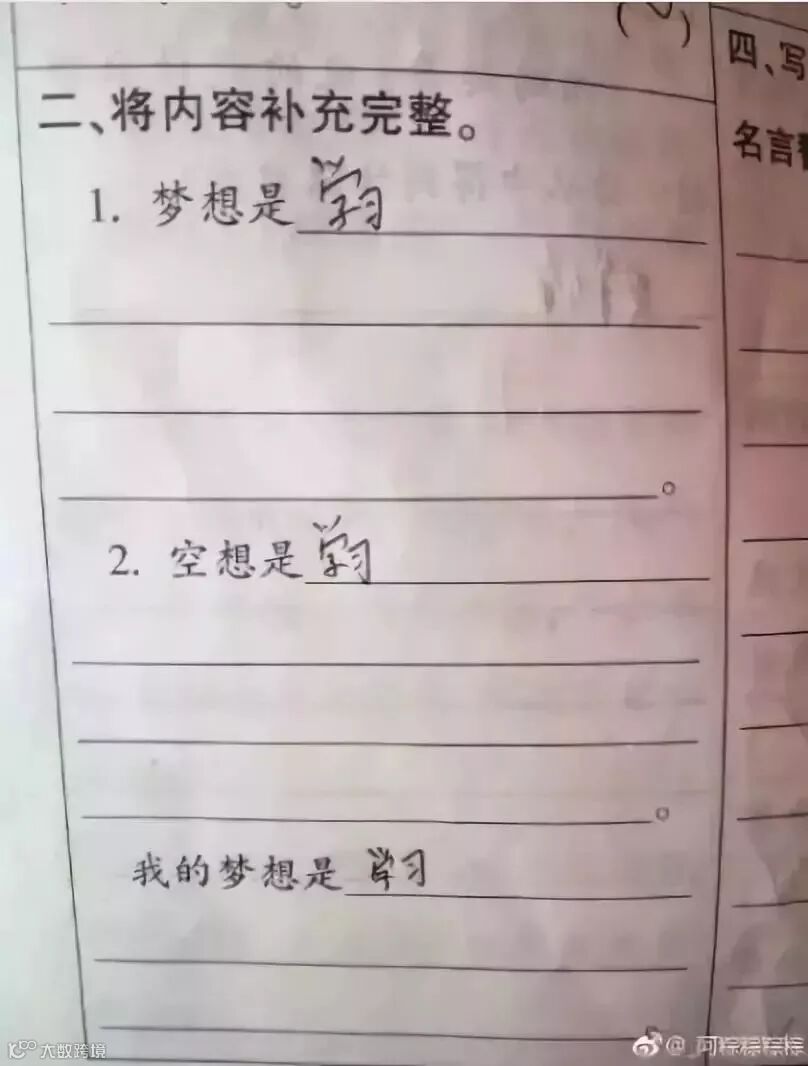 二、将内容补充完整。
1. 梦想是学习
。
2. 空想是学习
。
我的梦想是学习
四、写
名言
大数跨境
@_阿粽粽粽粽